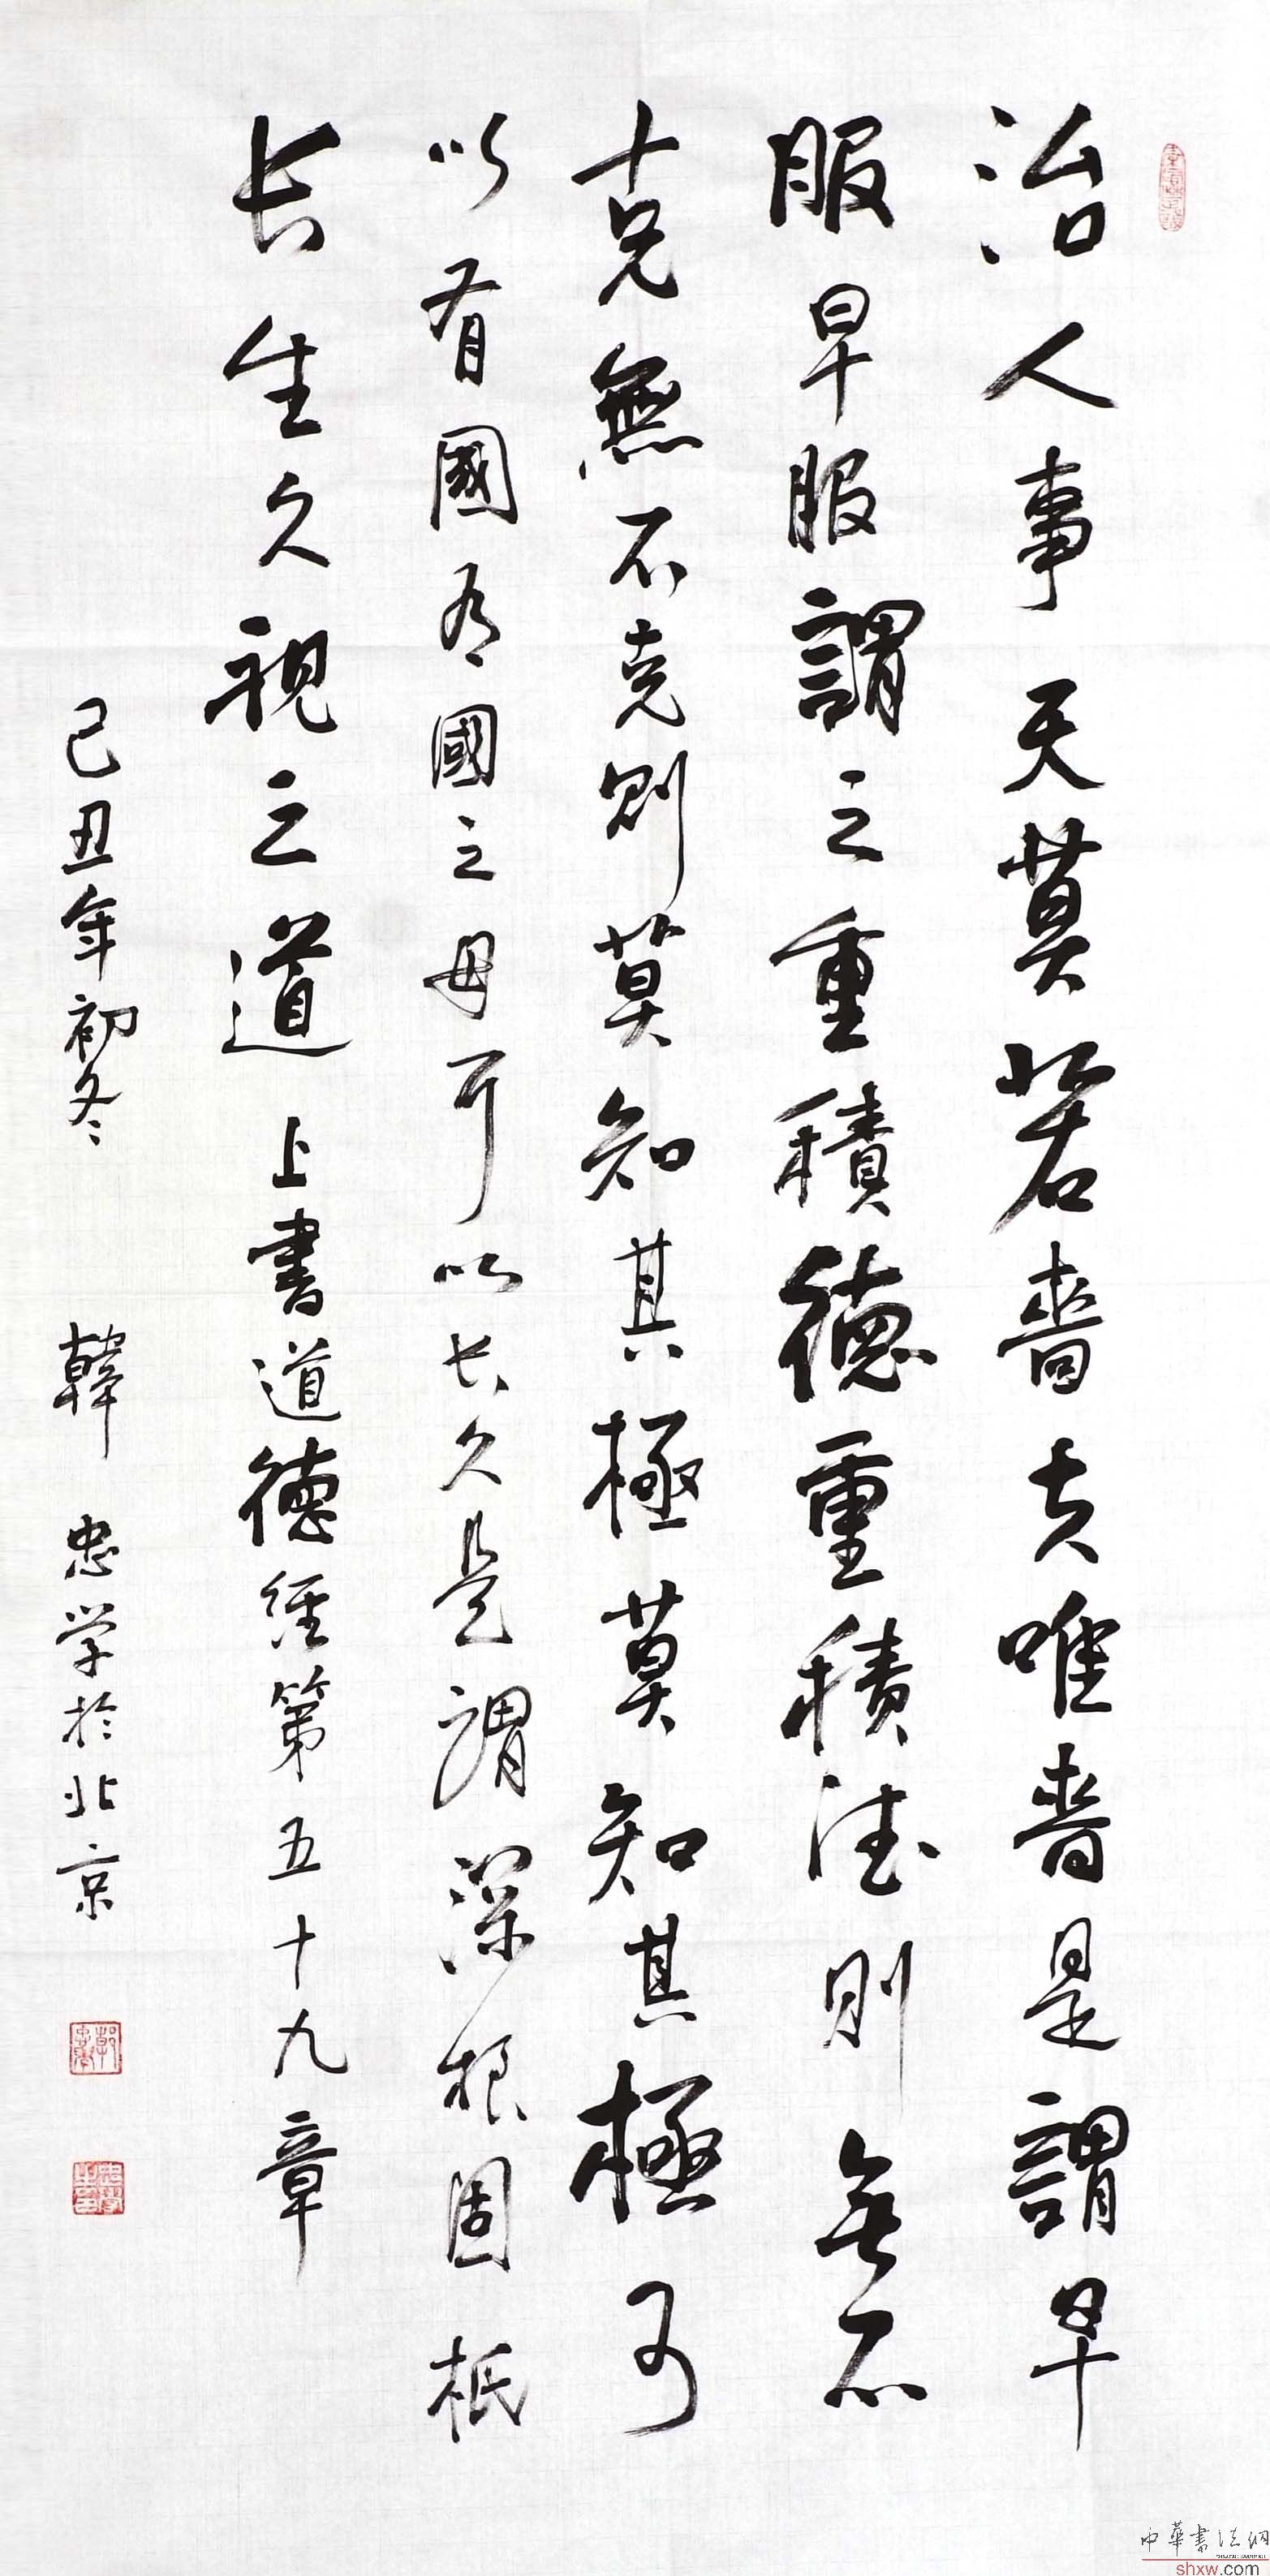 治人事天莫若嗇夫唯嗇是謂早
服早服謂之重積德重積德則無不
克無不克則莫知其極莫知其極可
以有國有國之母可以長久是謂深根固柢
长生久視之道 上書道德經第五十九章
己丑年初冬 韓忠学於北京
中華書法網
shxw.com